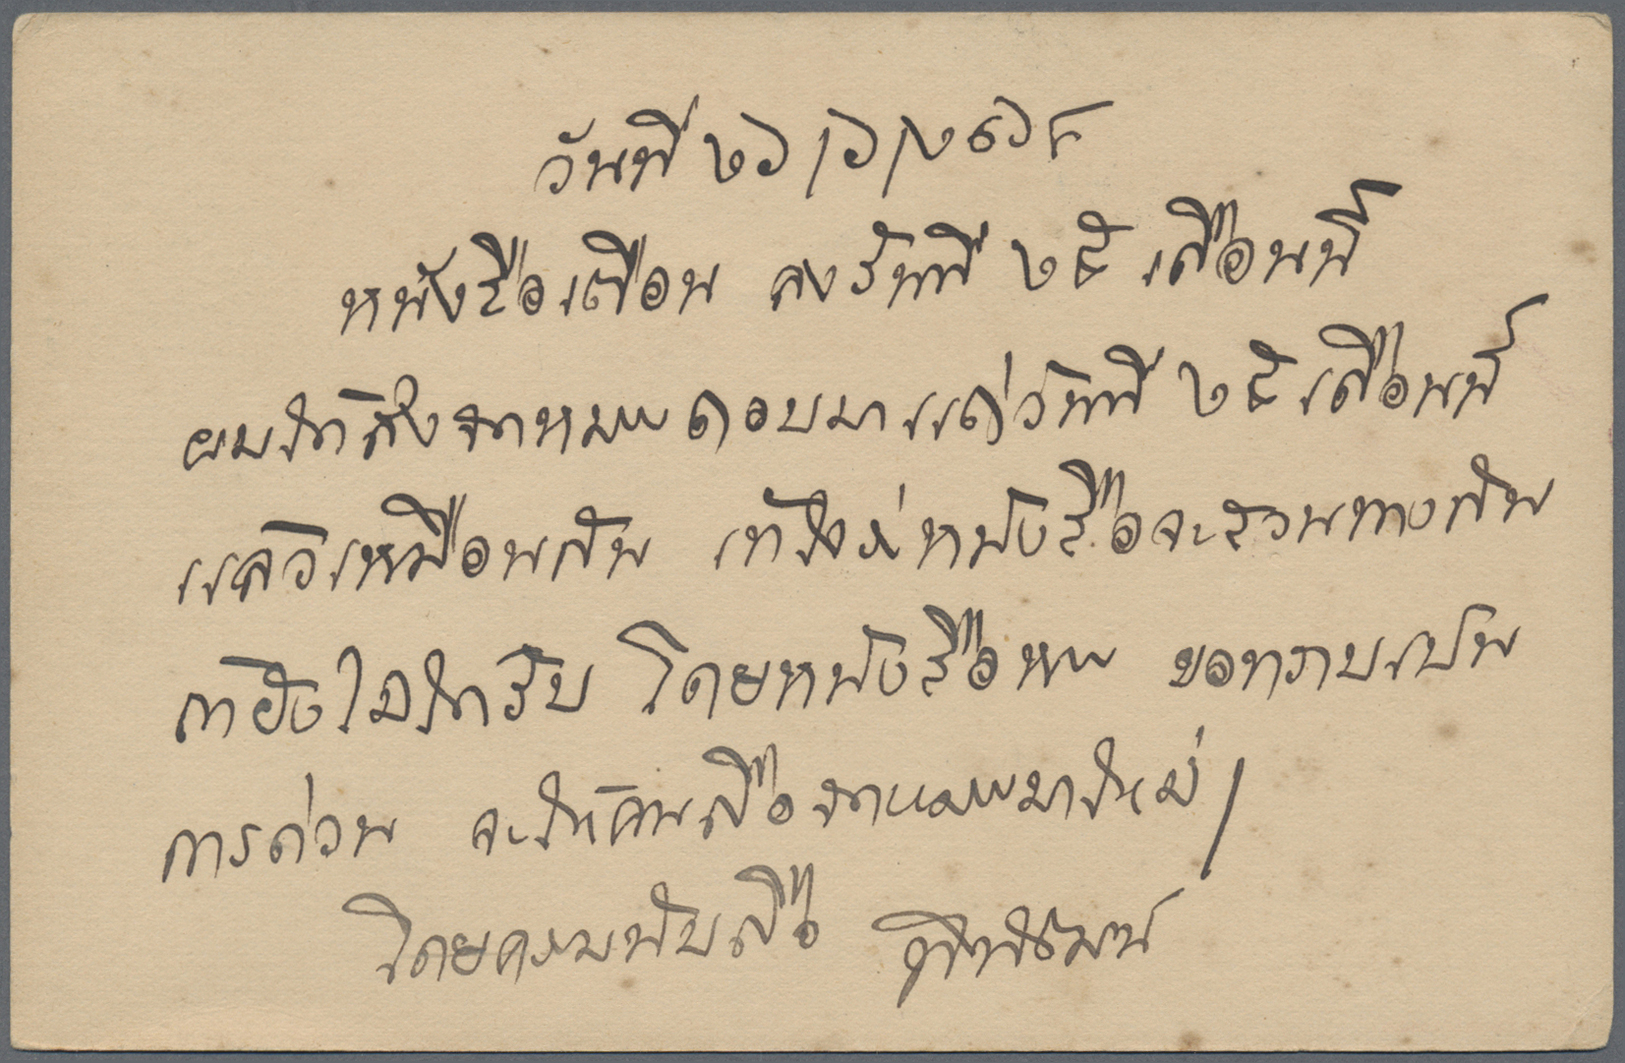 วันที่ ๒๖/๖/๒๔๖๘
หนังสือเตือน ลงวันที่ ๒๕ เดือนนี้
ผมได้ส่งจดหมายตอบมาแต่วันที่ ๒๕ เดือนนี้
แล้วเหมือนกัน หนังสือจะสวนทางกัน
ถ้ายังไม่ได้รับ โดยหนังสือหาย ขอทราบเป็น
การด่วน จะได้คัดสือจดหมายมาใหม่
โดยความนับถือ